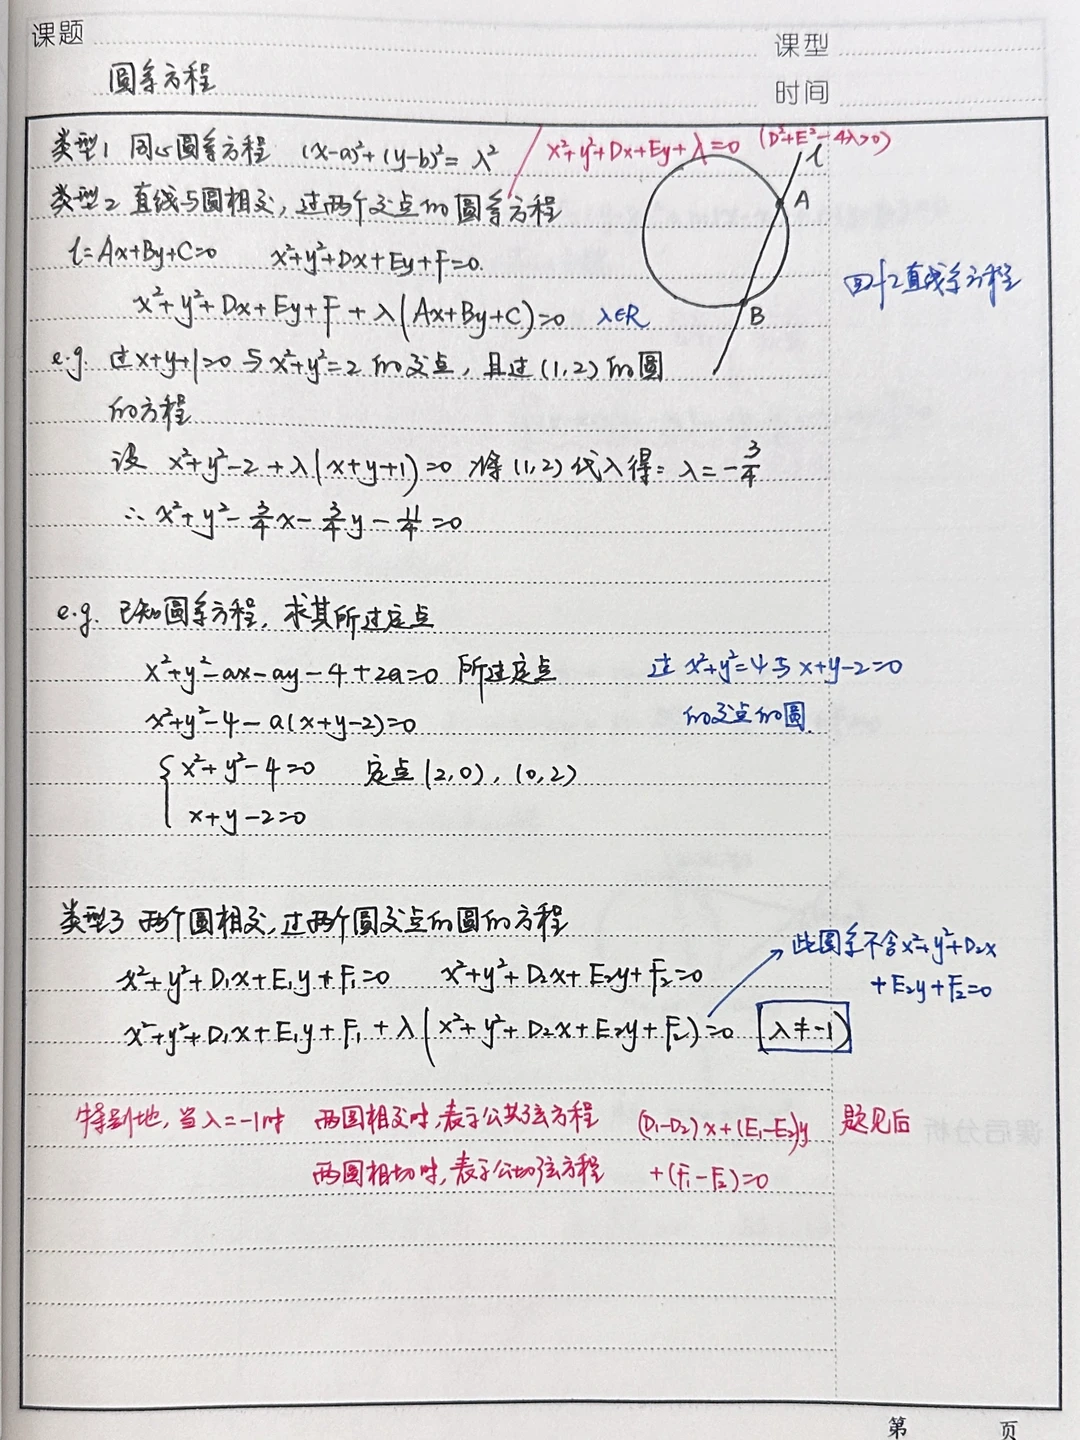 课题
课型
圆系方程
时间
类型1 同心圆系方程 (x-a)²+(y-b)²=λ² / x²+y²+Dx+Ey+λ=0 (D²+E²-4λ>0)
类型2 直线与圆相交,过两个交点的圆系方程
l
A
B
l=Ax+By+C=0 x²+y²+Dx+Ey+F=0.
x²+y²+Dx+Ey+F+λ(Ax+By+C)=0 λ∈R
直线系方程
e.g. 过x+y+1=0与x²+y²=2的交点,且过(1,2)的圆
的方程
设 x²+y²-2+λ(x+y+1)=0 将(1,2)代入得:λ=-3/4
∴ x²+y²-3/4x-3/4y-11/4=0
e.g. 已知圆系方程,求其所过定点
x²+y²-ax-ay-4+2a=0 所过定点 过x²+y²=4与x+y-2=0
的交点的圆
x²+y²-4-a(x+y-2)=0
{ x²+y²-4=0 定点(2,0),(0,2)
x+y-2=0
类型3 两个圆相交,过两个圆交点的圆的方程
x²+y²+D₁x+E₁y+F₁=0 x²+y²+D₂x+E₂y+F₂=0
x²+y²+D₁x+E₁y+F₁+λ(x²+y²+D₂x+E₂y+F₂)=0 (λ≠-1)
此圆系不含x²+y²+D₂x
+E₂y+F₂=0
特别地,当λ=-1时 两圆相交时,表示公共弦方程 (D₁-D₂)x+(E₁-E₂)y 题见后
两圆相切时,表示公切弦方程 +(F₁-F₂)=0
第 页